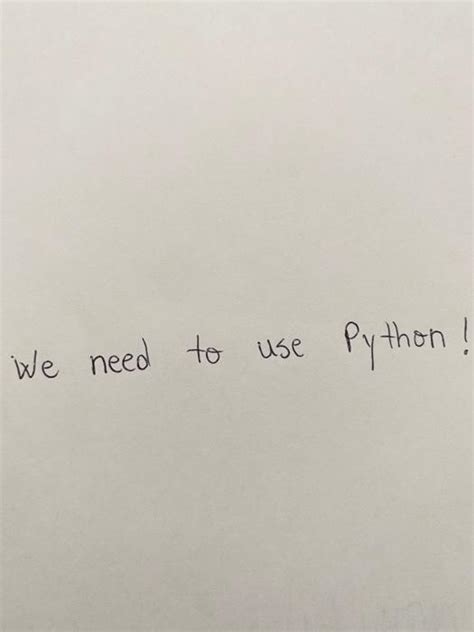 We need to use Python!